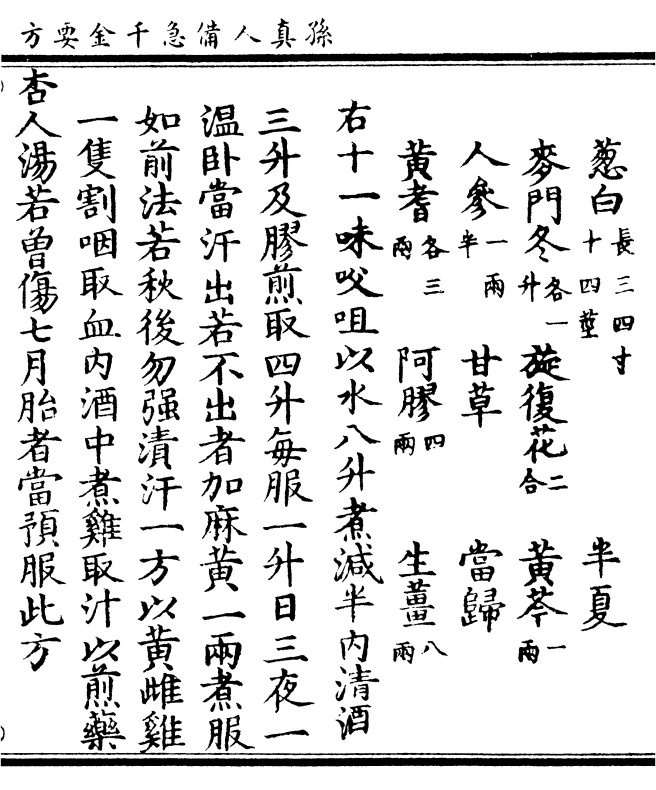 孫真人備急千金要方
葱白長三四寸十四莖 半夏
麥門冬各一升 旋復花二合 黃芩一兩
人參一兩半 甘草 當歸
黃耆各三兩 阿膠四兩 生薑八兩
右十一味㕮咀以水八升煮減半内清酒
三升及膠煎取四升每服一升日三夜一
温卧當汗出若不出者加麻黃一兩煮服
如前法若秋後勿强漬汗一方以黃雌雞
一隻割咽取血内酒中煮雞取汁以煎藥
杏人湯若曾傷七月胎者當預服此方